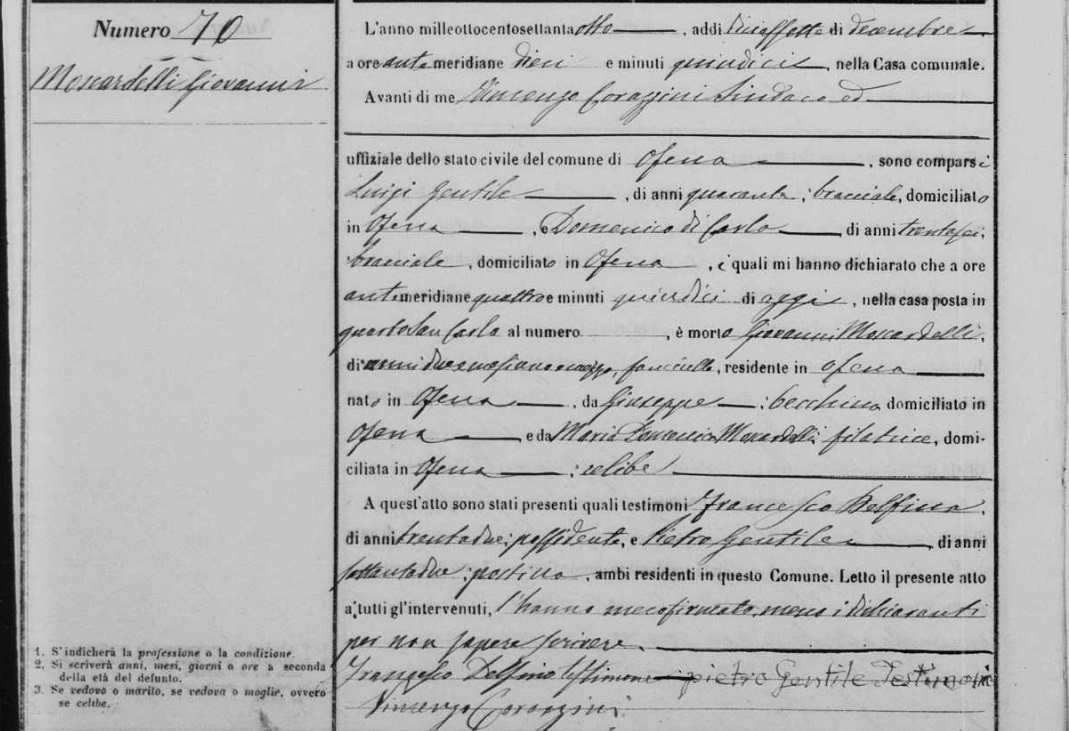 Numero 70
Moscardelli Giovanni
L'anno milleottocentosettanta otto, addì diciassette di decembre
a ore antemeridiane dieci e minuti quindici, nella Casa comunale.
Avanti di me Vincenzo Corazzini Sindaco ed
uffiziale dello stato civile del comune di Ofena, sono comparsi
Luigi Gentile, di anni quaranta; bracciale, domiciliato
in Ofena, e Domenico di Carlo, di anni trentasei;
bracciale, domiciliato in Ofena, i quali mi hanno dichiarato che a ore
antemeridiane quattro e minuti quindici di oggi, nella casa posta in
quarto San Carlo al numero, è morto Giovanni Moscardelli,
di anni due mesi uno e mezzo, fanciullo, residente in Ofena
nato in Ofena, da Giuseppe; becchino domiciliato in
Ofena e da Maria Moscardelli filatrice, domi-
ciliata in Ofena; celibe
A quest'atto sono stati presenti quali testimoni Francesco Delfino,
di anni trentadue; possidente, e Pietro Gentile, di anni
settantadue; postino, ambi residenti in questo Comune. Letto il presente atto
a tutti gl'intervenuti, l'hanno meco firmato, meno i dichiaranti
per non sapere scrivere.
Francesco Delfino testimone pietro Gentile Testimonio
Vincenzo Corazzini
1. S'indicherà la professione o la condizione.
2. Si scriverà anni, mesi, giorni o ore a seconda
della età del defunto.
3. Se vedovo o marito, se vedova o moglie, ovvero
se celibe.